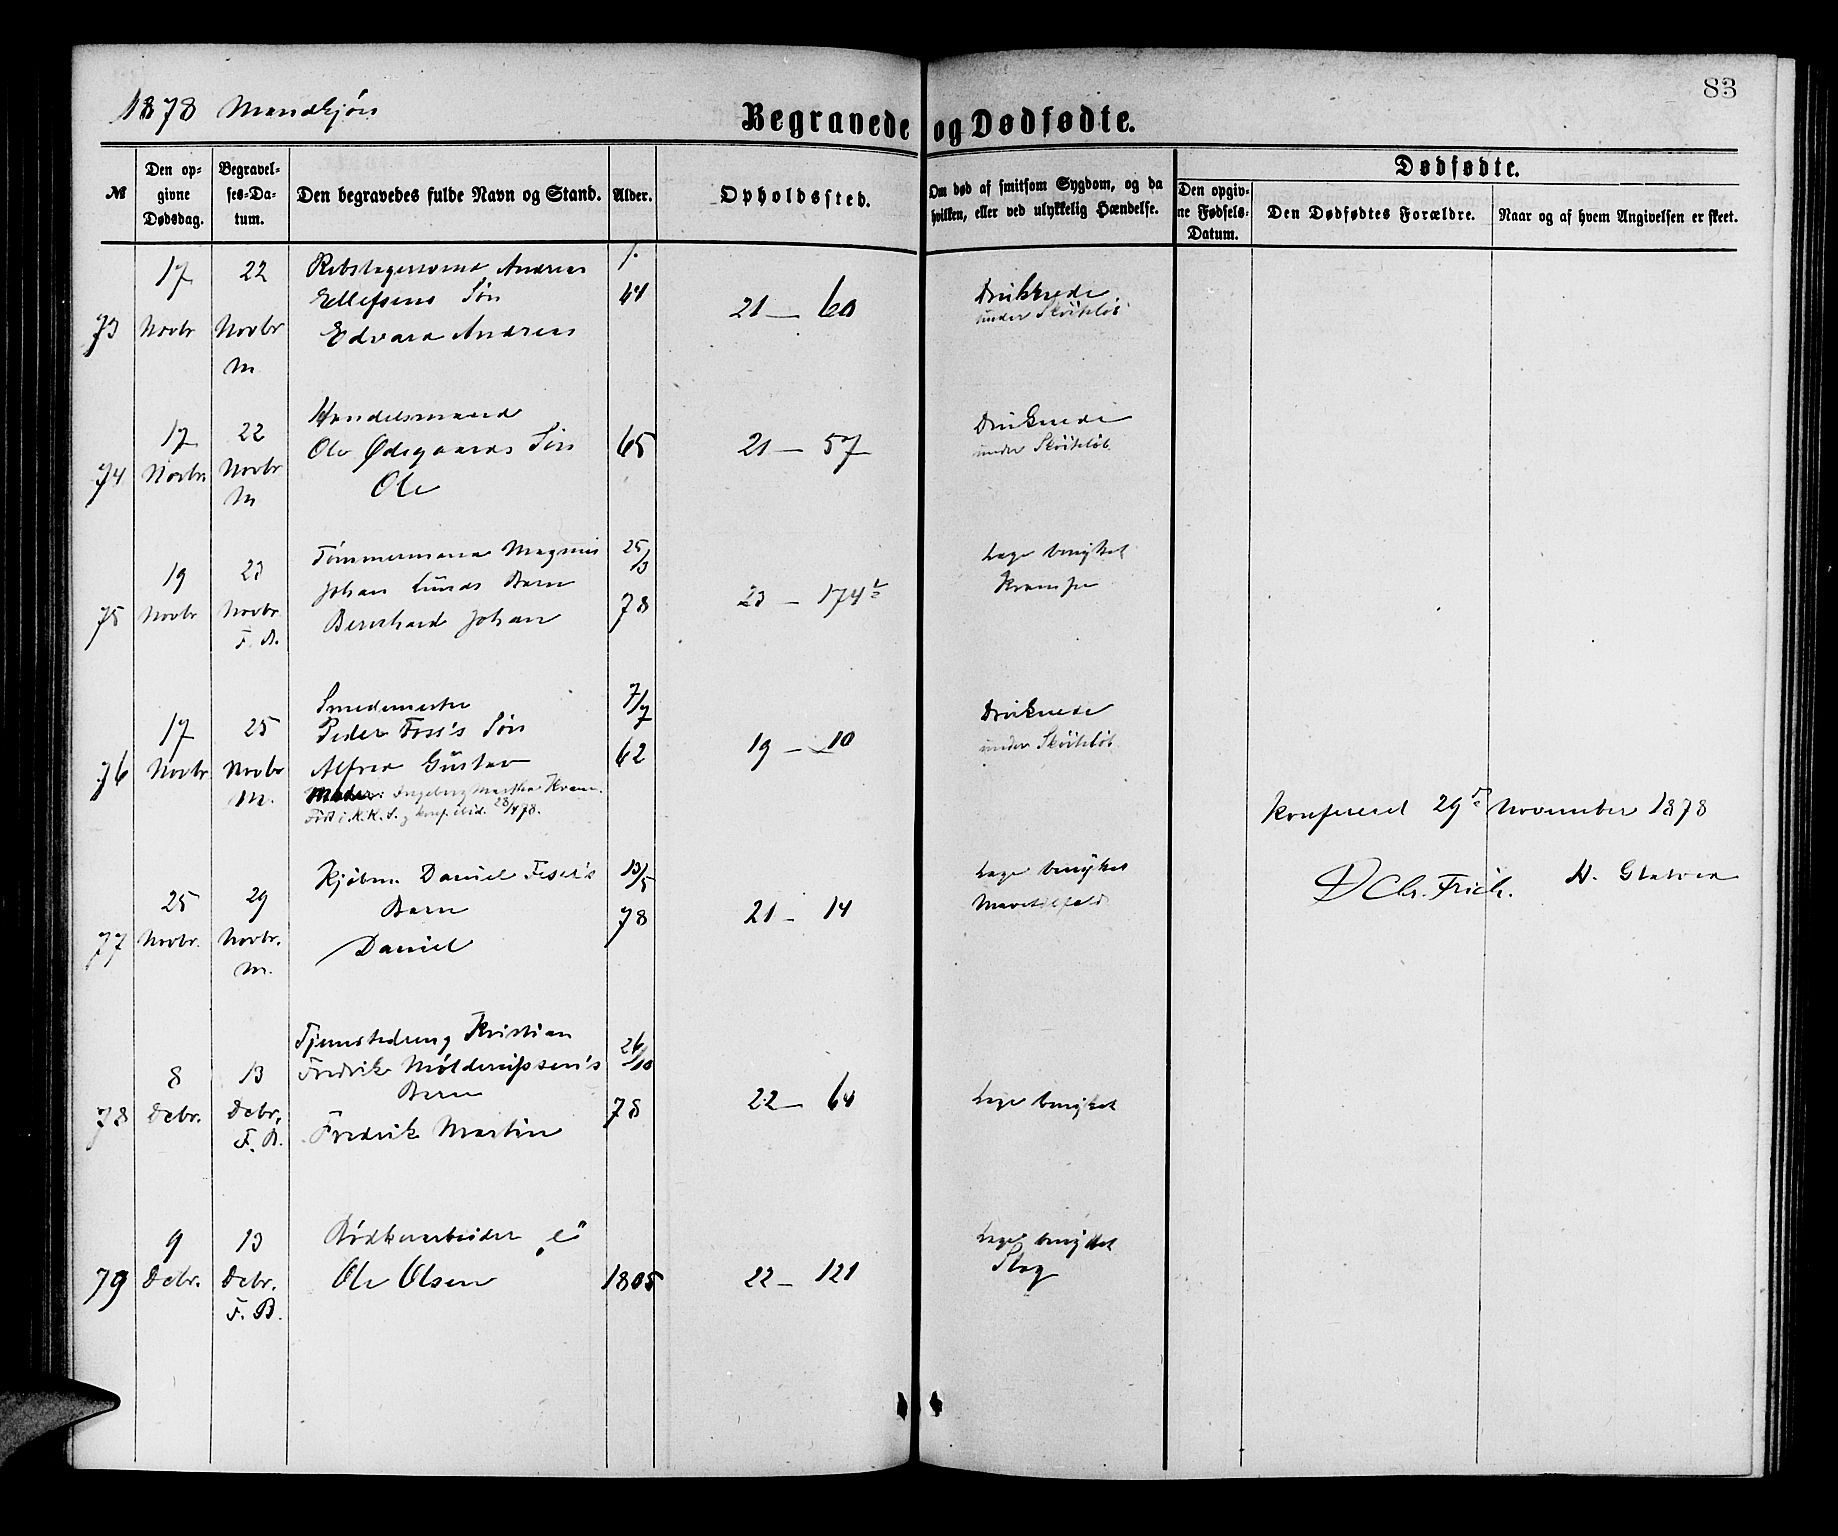 83
1878 Mandkjøn
Begravede og Dødfødte.
№
Den opgivne Dødsdag.
Begravelses-Datum.
Den begravedes fulde Navn og Stand.
Alder.
Opholdssted.
Om død af smitsom Sygdom, og da hvilken, eller ved ulykkelig Hændelse.
Dødfødte.
Den opgivne Fødsels-Datum.
Den Dødfødtes Forældre.
Naar og af hvem Angivelsen er skeet.
73
17 Novbr
22 Novbr M
Rebslagersvend Andreas
Ellefsens Søn
Edvard Andreas
64
21 — 60
Druknede
under Skøiteløb
74
17 Novbr
22 Novbr M
Handelsmand
Ole Ødegaards Søn
Ole
65
21 — 57
Druknede
under Skøiteløb.
75
19 Novbr
23 Novbr F. B.
Tømmermand Magnus
Johan Lunds Barn
Bernhard Johan
25/3 78
23 — 174
Læge benyttet
Krampe
76
17 Novbr
25 Novbr M.
Smedemester
Peder Foss's Søn
Alfred Gustav
Moder: Ingeborg Martha
Født i K. K. S. og konf. ibid. 28/4 78.
7/7 62
19 — 10
Druknede
under Skøiteløb
Konfereret 29de November 1878
Chr. Frich.
77
25 Novbr.
29 Novbr. M.
Kjøbm. Daniel
Barn
Daniel
13/5 78
21 — 14
Læge benyttet
78
8 Debr.
13 Debr. F. B.
Tjenestedreng Kristian
Fredrik
Barn
Fredrik Martin
26/10 78
22 — 64
Læge benyttet
79
9 Debr.
13 Debr. F. B.
Bødkerarbeider „e"
Ole Olsen
1805
22 — 121
Læge benyttet
Slag